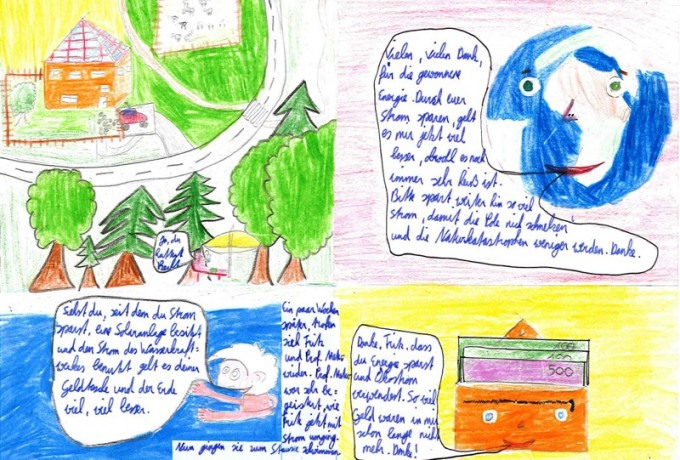 Ja, du
hattest
Recht
Vielen, vielen Dank,
für die gewonnene
Energie. Durch euer
Strom sparen, geht
es mir jetzt viel
besser, obwohl es noch
immer sehr heiß ist.
Bitte spart weiter hin so viel
Strom, damit die Pole nich schmelzen
und die Naturkatastrophen weniger werden. Danke.
Siehst du, seit dem du Strom
sparst, eine Solaranlage besitzt
und den Strom des Wasserkraft=
werkes benutzt geht es deiner
Geldtasche und der Erde
viel, viel besser.
Ein paar Wochen
später, trafen
sich Fritz
und Prof.
wieder. Prof.
war als be-
geistert, wie
Fritz jetzt mit
Strom umging.
Nun gingen sie zum Stausee schwimmen
Danke, Fritz, dass
du Energie sparst
und Ökostrom
verwendest. So viel
Geld waren in mir
schon lange nicht
mehr. Danke!
100
500